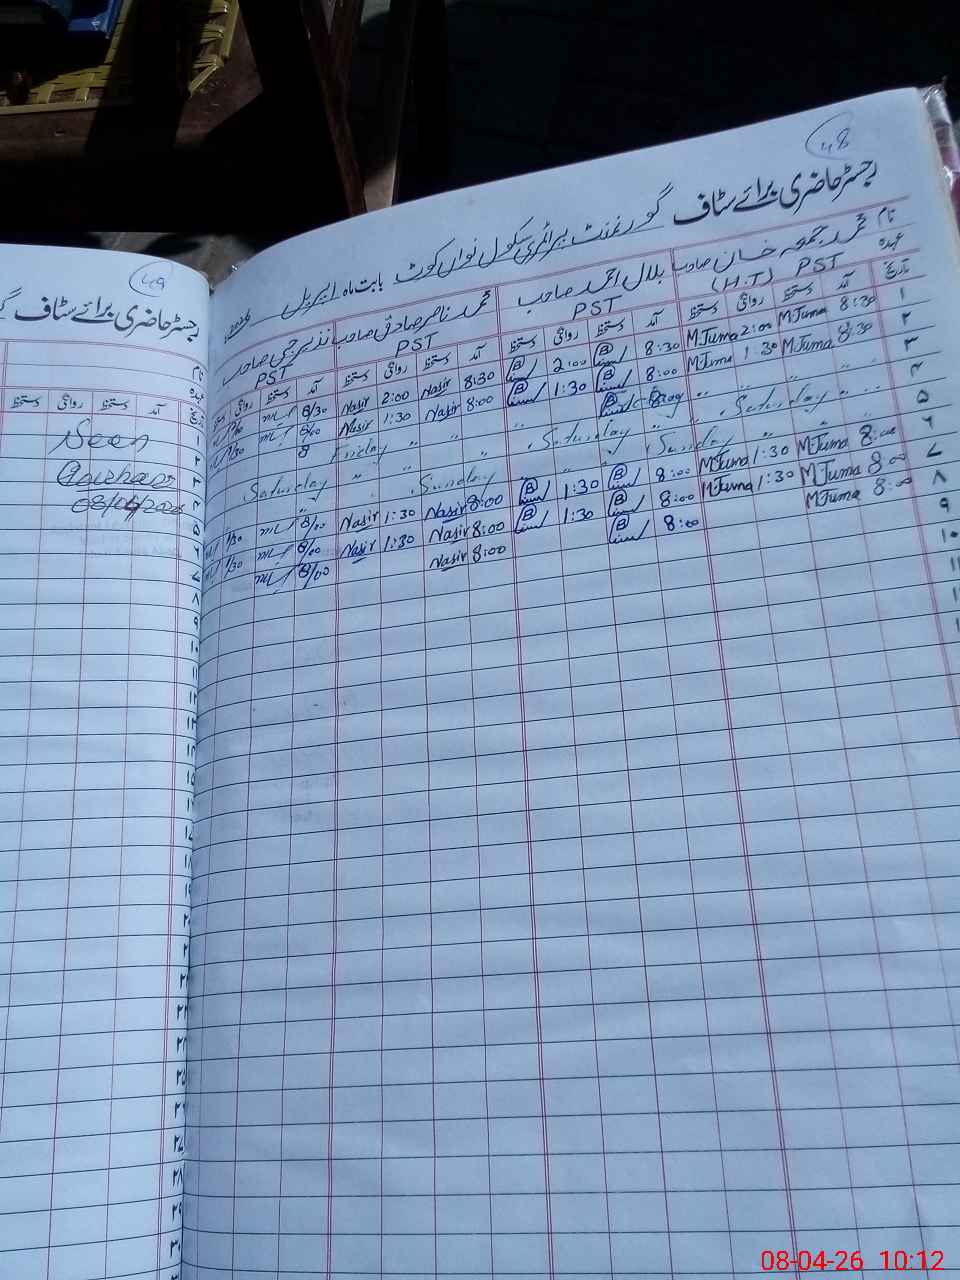 48
رجسٹر حاضری برائے سٹاف گورنمنٹ پرائمری سکول نواں کوٹ بابت ماہ اپریل 2026
نام محمد جمعہ خان صاحب بلال احمد صاحب محمد ناصر صادق صاحب نذیر
عہدہ PST (H.T) PST PST PST
تاریخ آمد دستخط روانگی دستخط آمد دستخط روانگی دستخط آمد دستخط روانگی دستخط آمد دستخط روانگی
۱ 8:30 M.Juma 2:00 M.Juma 8:30 2:00 8:30 Nasir 2:00 Nasir 8/30
۲ 8:30 M.Juma 1:30 M.Juma 8:00 1:30 8:00 Nasir 1:30 Nasir 8/00 1/30
۳ Friday
۴ Saturday Saturday Saturday
۵ Sunday Sunday
۶ 8:00 M.Juma 1:30 M.Juma 8:00 1:30 8:00 Nasir 1:30 Nasir 8/00 1/30
۷ 8:00 M.Juma 1:30 M.Juma 8:00 1:30 8:00 Nasir 1:30 Nasir 8/00 1/30
۸ 8:00 M.Juma 8:00 8:00 Nasir 8/00
۹
۱۰
۱۱
49
رجسٹر حاضری برائے سٹاف
نام
عہدہ
تاریخ آمد دستخط روانگی دستخط
۱ Seen
۲
۳
08/04/2026
۵
۶
۷
۸
۹
۱۰
۱۱
۱۲
۱۳
۱۴
۱۵
۱۶
۱۷
۱۸
۱۹
۲۰
۲۱
۲۲
۲۳
۲۴
۲۵
۲۶
۲۷
۲۸
۲۹
۳۰
08-04-26 10:12